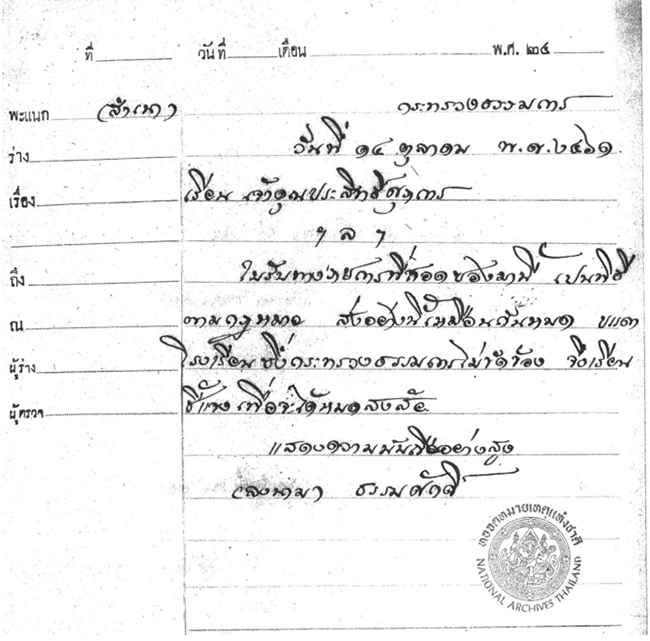 ที่ วันที่ เดือน พ.ศ. ๒๔
พะแนก (สำเนา) กระทรวงธรรมการ
ร่าง วันที่ ๑๔ ตุลาคม พ.ศ. ๒๔๖๑
เรื่อง เรียน เจ้าคุณประสิทธิ์ศุภการ
ฯ ล ฯ
ถึง ใบรับทางราชการที่สอดซองมานี้ เป็นพิธี
ณ ตามกฎหมาย ส่งอย่างนี้เหมือนกันหมด
ผู้ร่าง โรงเรียน ซึ่งกระทรวงธรรมการไม่ขัดข้อง จึงเรียน
ผู้ตรวจ ชี้แจง เพื่อจะได้หมดสงสัย
แสดงความนับถืออย่างสูง
(ลงนาม) ธรรมศักดิ์
หอจดหมายเหตุแห่งชาติ
NATIONAL ARCHIVES THAILAND